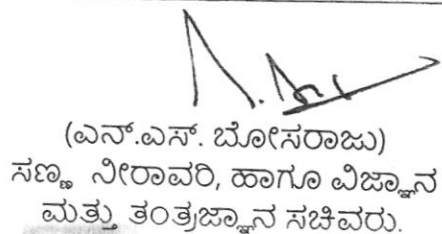 (ಎನ್.ಎಸ್. ಬೋಸರಾಜು)
ಸಣ್ಣ ನೀರಾವರಿ, ಹಾಗೂ ವಿಜ್ಞಾನ
ಮತ್ತು ತಂತ್ರಜ್ಞಾನ ಸಚಿವರು.